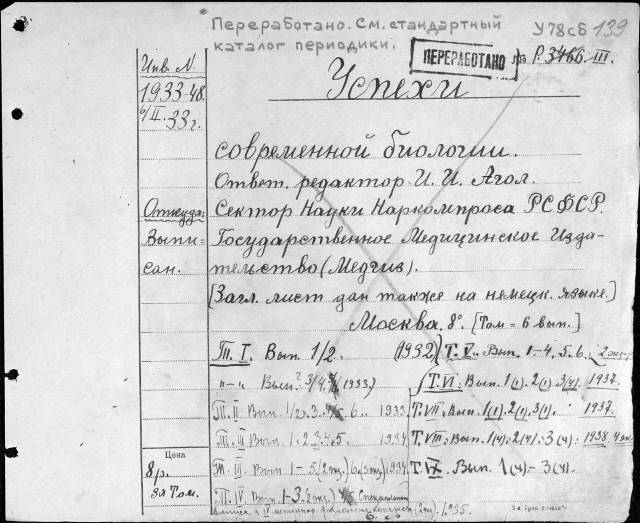 Переработано. См. стандартный
каталог периодики.
У78сб 139
ПЕРЕРАБОТАНО
Р. 3466 III.
Инв. N.
1933-48.
6/II. 33г.
Успехи
современной биологии.
Ответ. редактор И. И. Агол.
Откуда: Сектор Науки Наркомпроса РСФСР.
Выпи- Государственное Медицинское Изда-
сан. тельство (Медгиз).
[Загл. лист дан также на немецк. языке.]
Москва. 8° [Том = 6 вып.]
Т. I. Вып. 1/2. (1932) Т. V. Вып. 1-4, 5. 6.
"-" Вып. 3/4, 1933) Т. VI. Вып. 1(1). 2(1). 3(4). 1937.
Т. II. Вып. 1/2. 3. 4/5 6. 1933 Т. VII. Вып. 1(1). 2(1). 3(1). 1937.
Т. II Вып. 1. 2. 3. 4. 5. 1934 Т. VIII. Вып. 1(4). 2(4). 3(4). 1938.
Цена
8 р.
за Том.
Т. III. Вып. 1-5. 1934 Т. IX. Вып. 1(4)-3(4).
Т. IV Вып. 1-3.
1935.